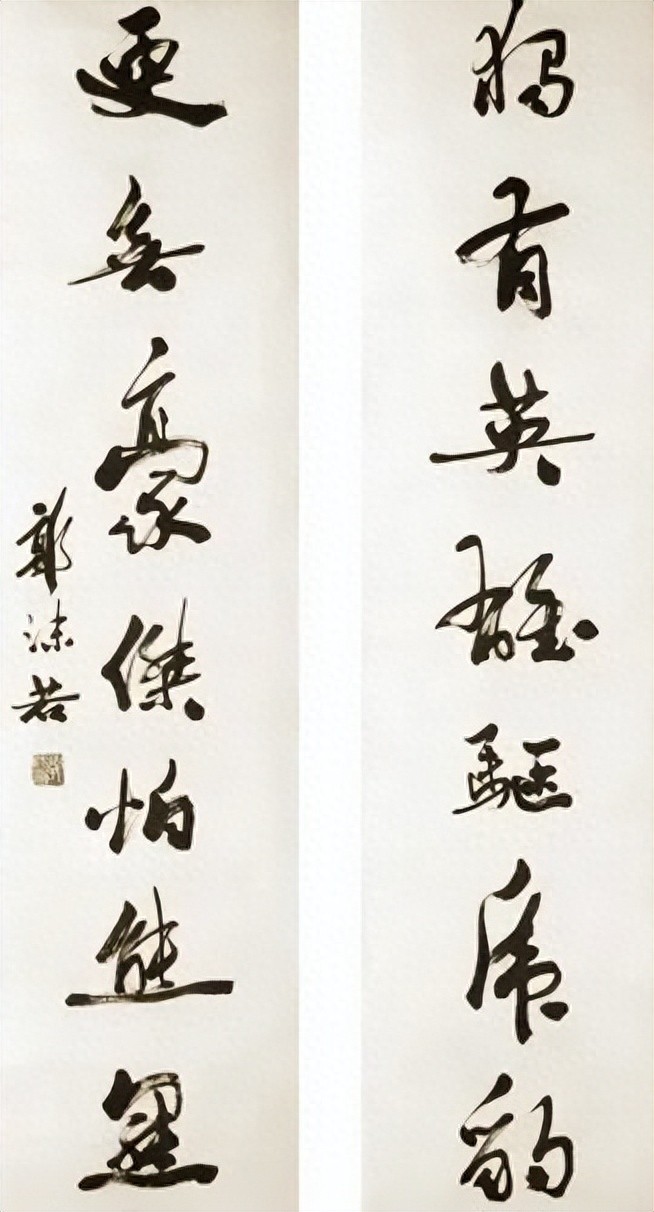 獨有英雄驅虎豹
更無豪傑怕熊羆
郭沫若